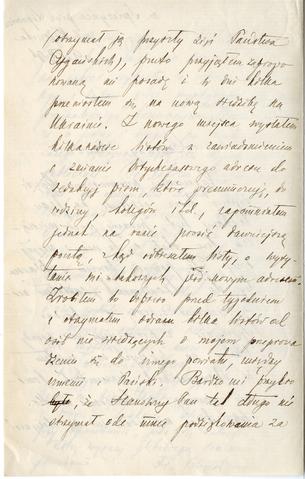 (otrzymał ją przyszły zięć Państwa
), przeto przyjąłem zapropo-
nowaną mi posadę i w dni kilka
przeniosłem się na nową siedzibę na
Ukrainie. Z nowego miejsca wysłałem
kilkanaście listów z zawiadomieniem
o zmianie dotychczasowego adresu do
redakcyj pism, które prenumeruję, do
rodziny, kolegów itd., zapomniałem
jednak na razie prosić dawniejszą
pocztę, skąd odbierałem listy, o wysy-
łanie mi takowych pod nowym adresem.
Zrobiłem to dopiero przed tygodniem
i otrzymałem odrazu kilka listów od
osób nie wiedzących o mojem przepro-
dzeniu się do innego powiatu, między
innemi i Pański. Bardzo mi przykro
było, że Szanowny Pan tak długo nie
otrzymał ode mnie podziękowania za